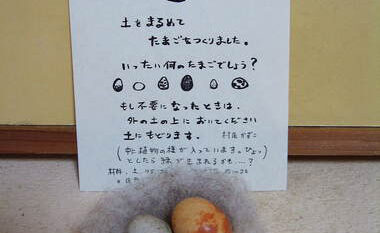 土をまるめて
たまごをつくりました。
いったい何のたまごでしょう?
もし不要になったときは、
外の土の上においてください
土にもどります。
(植物の種が入っています。ひょっ
としたら緑が生まれるかも…?
材料、土